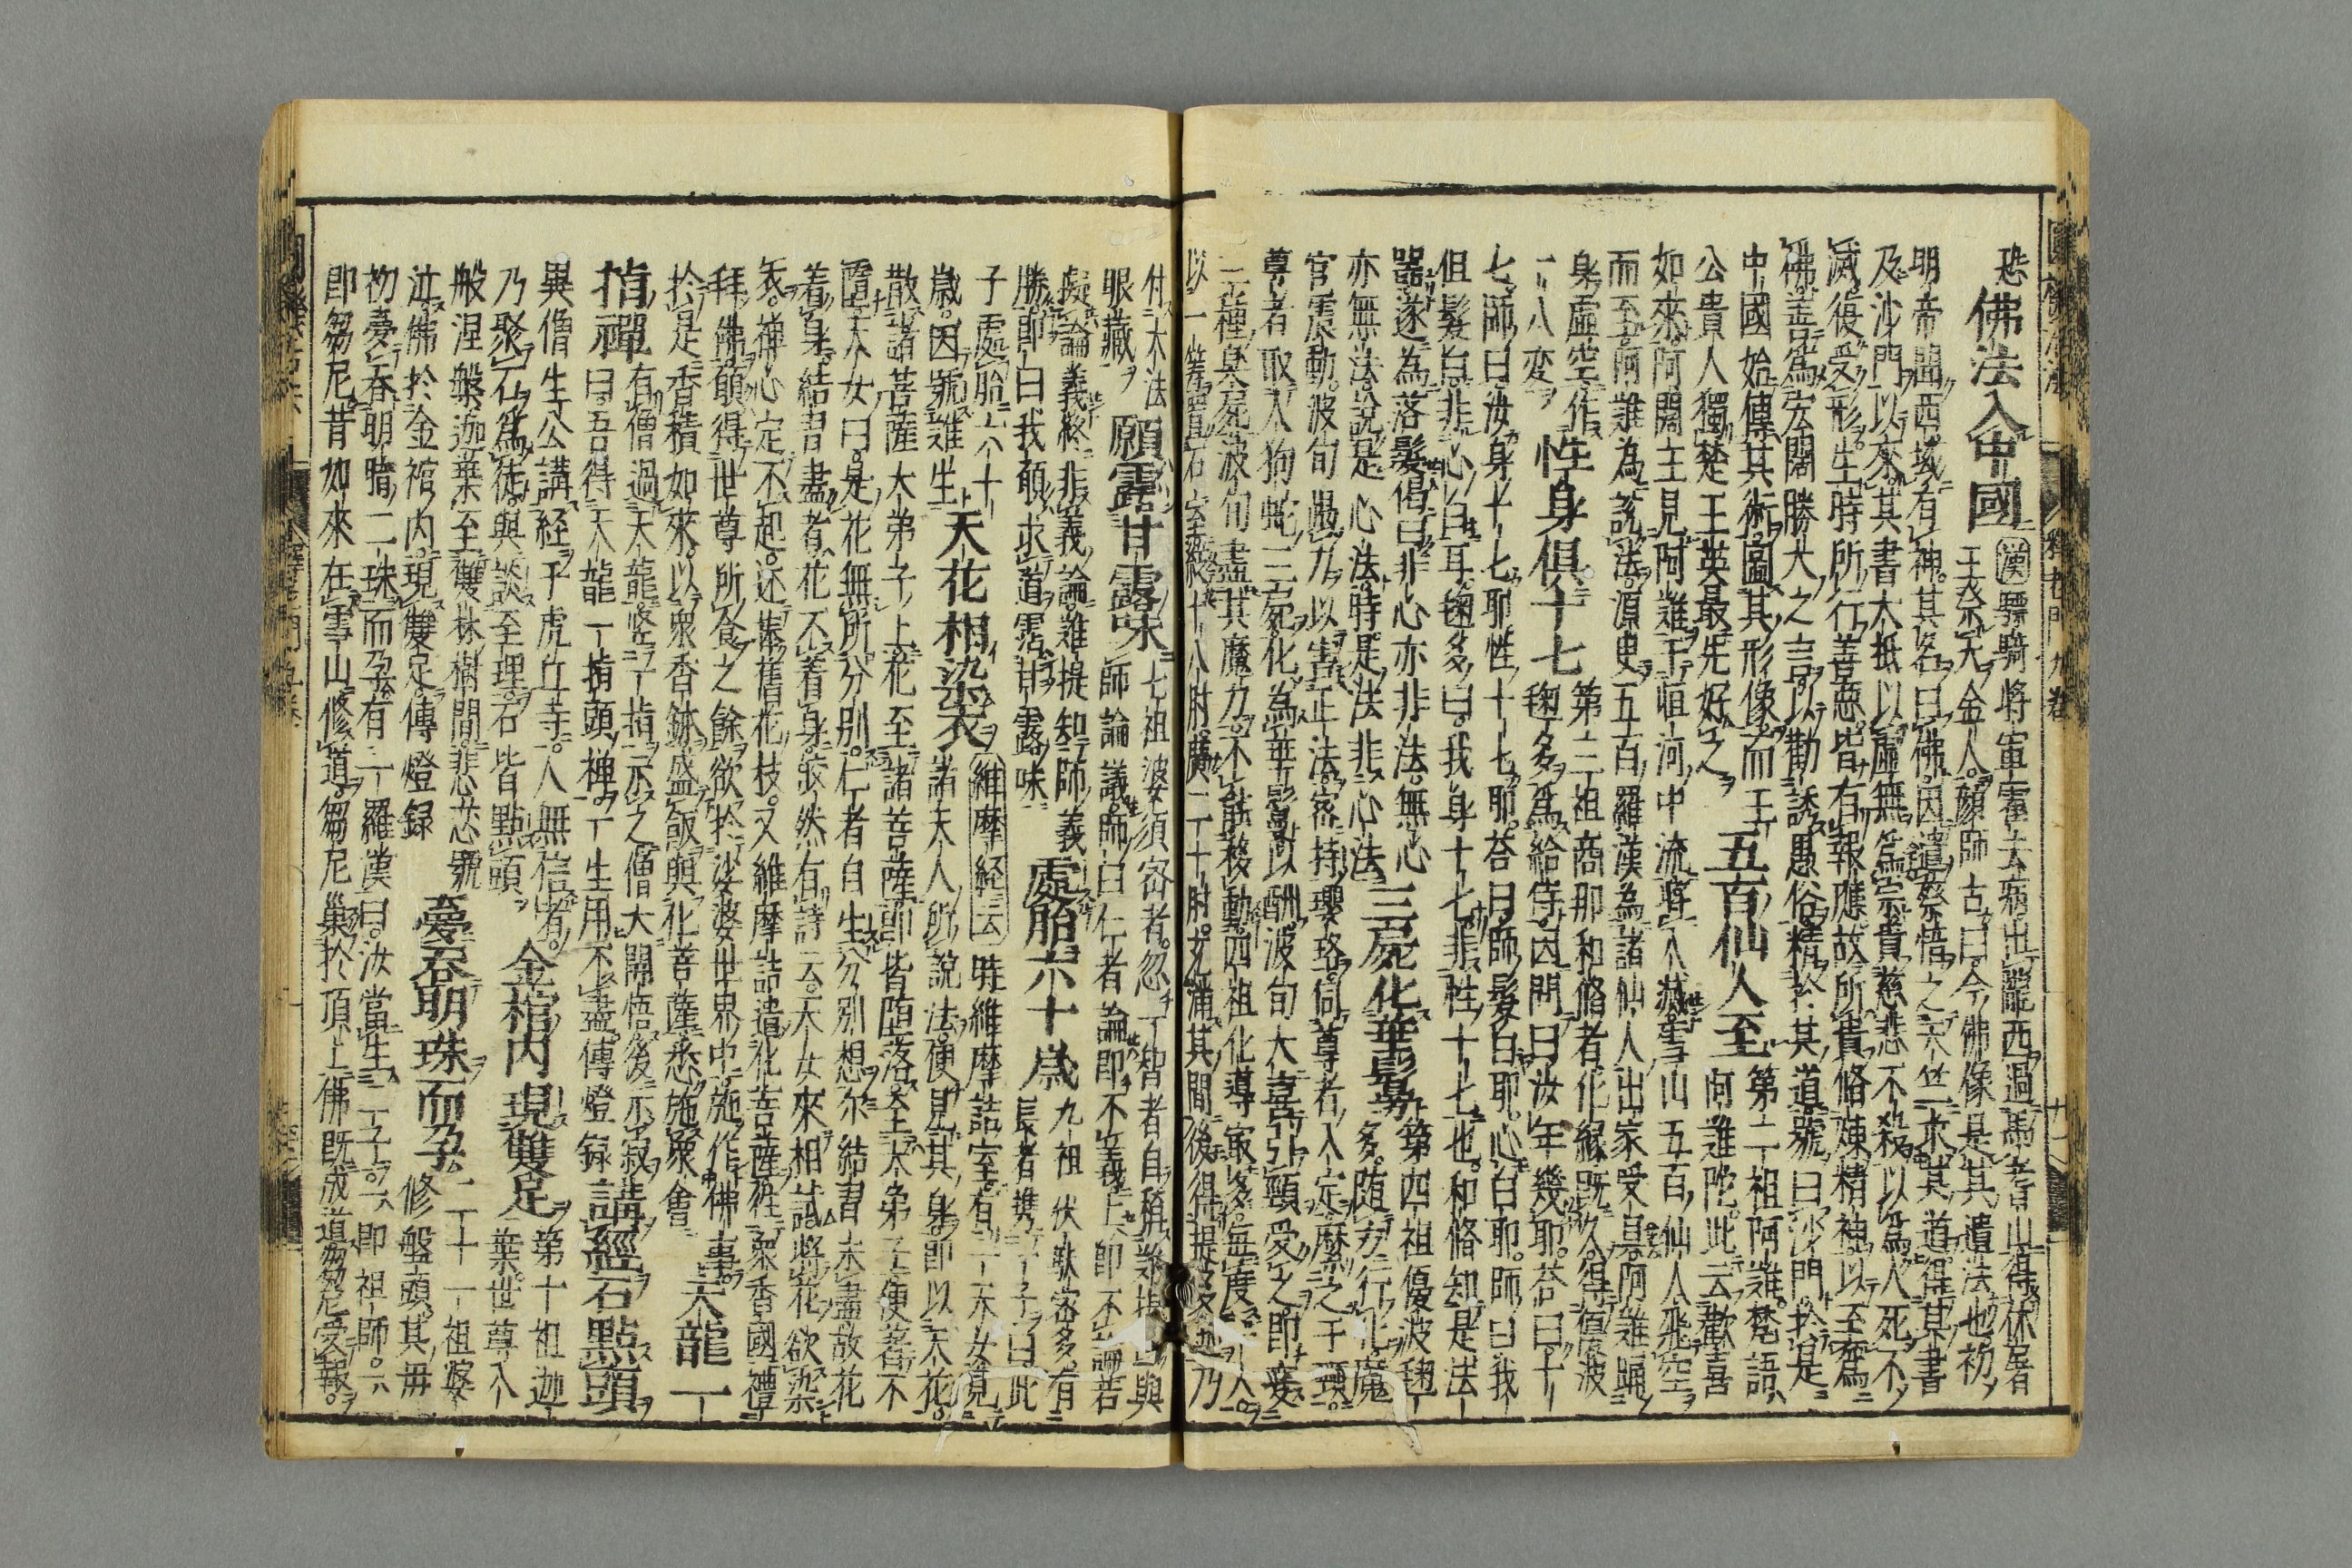 恐佛法入中國漢驃騎將軍霍去病出隴西過焉耆山得休屠
王祭天金人顔師古曰今佛像是其遺法也初
明帝聞西域有神其名曰佛因遣蔡愔之天竺求其道得其書
及沙門以來其書大抵以虛無為宗貴慈悲不殺以為人死不
滅復受形生時所行善惡皆有報應故所貴脩煉精神以至為
佛善為宏闊勝大之言以勸誘愚俗精於其道號曰沙門於是
中國始傳其術圖其形像而王
公貴人獨楚王英最先好之
五百仙人至
第二祖阿難梵語
阿難陀此云歡喜
如來阿闍主見阿難于恒河中流將入滅雪山五百仙人飛空
而至阿難為說法源史五百羅漢為諸仙人出家受具阿難踊
身虛空作
十八變
性身俱十七
第三祖商那和脩者化緣既久得優波
毱多為給侍因問曰汝年幾耶荅曰十
七師曰汝身十七耶性十七耶荅曰師髮白耶心白耶師曰我
但髮白非心白耳毱多曰我身十七非性十七也和脩知是法
器遂為落髮偈曰非心亦非法無心
亦無法說是心法時是法非心法
三屍化華鬘
第四祖優波毱
多随方行化魔
宮震動波旬愚力以害正法密持瓔珞伺尊者入定縻之于頸
尊者取人狗蛇三屍化為華鬘以酬波旬大喜引頸受之即變
三種臭屍波旬盡其魔力不能移動四祖化導最多每度一人
以一籌置石室縱十八肘廣一十肘充滿其間後得提多迦乃
付大法
眼藏
願霑甘露味
七祖婆須密者忽一智者自稱
師論議師曰仁者論即不義義即不論若
擬論義終非義論難提知師義
勝即曰我願求道霑甘露味
處胎六十歲
九祖伏馱密多有
長者攜一子曰此
子處胎六十
歲因號難生
天花相染衣
維摩経云時維摩詰室有一天女見
諸天人所說法便見其身即以天花
散諸菩薩大弟子上花至諸菩薩即皆堕落至大弟子便著不
墮天女曰是花無所分別仁者自生分別想尓結習未盡故花
着身結習盡者花不着身皎然有詩云天女來相試將花欲染
衣禅心定不起還捧舊花枝又維摩詰遣化菩薩往衆香國禮
拜佛願得世尊所食之餘欲於娑婆世界中施作佛事
於是香積如來以衆香鉢盛飯與化菩薩悉施衆會
天龍一
指禪
有僧過天龍竪一指示之僧大開悟後示寂
曰吾得天龍一指頭禅一生用不盡傳燈録
講經石點頭
異僧生公講経于虎丘寺人無信者
乃聚石為徒與談至理石皆點頭
金棺内現雙足
第十祖迦
葉世尊入
般涅槃迦葉至雙林樹間悲恋號
泣佛於金棺内現雙足傳燈録
夢呑明珠而孕
二十一祖婆
修盤頭其母
初夢呑明暗二珠而孕有一羅漢曰汝當生二子一即祖師一
即芻尼昔如來在雪山修道芻尼巢於頂上佛既成道芻尼受報